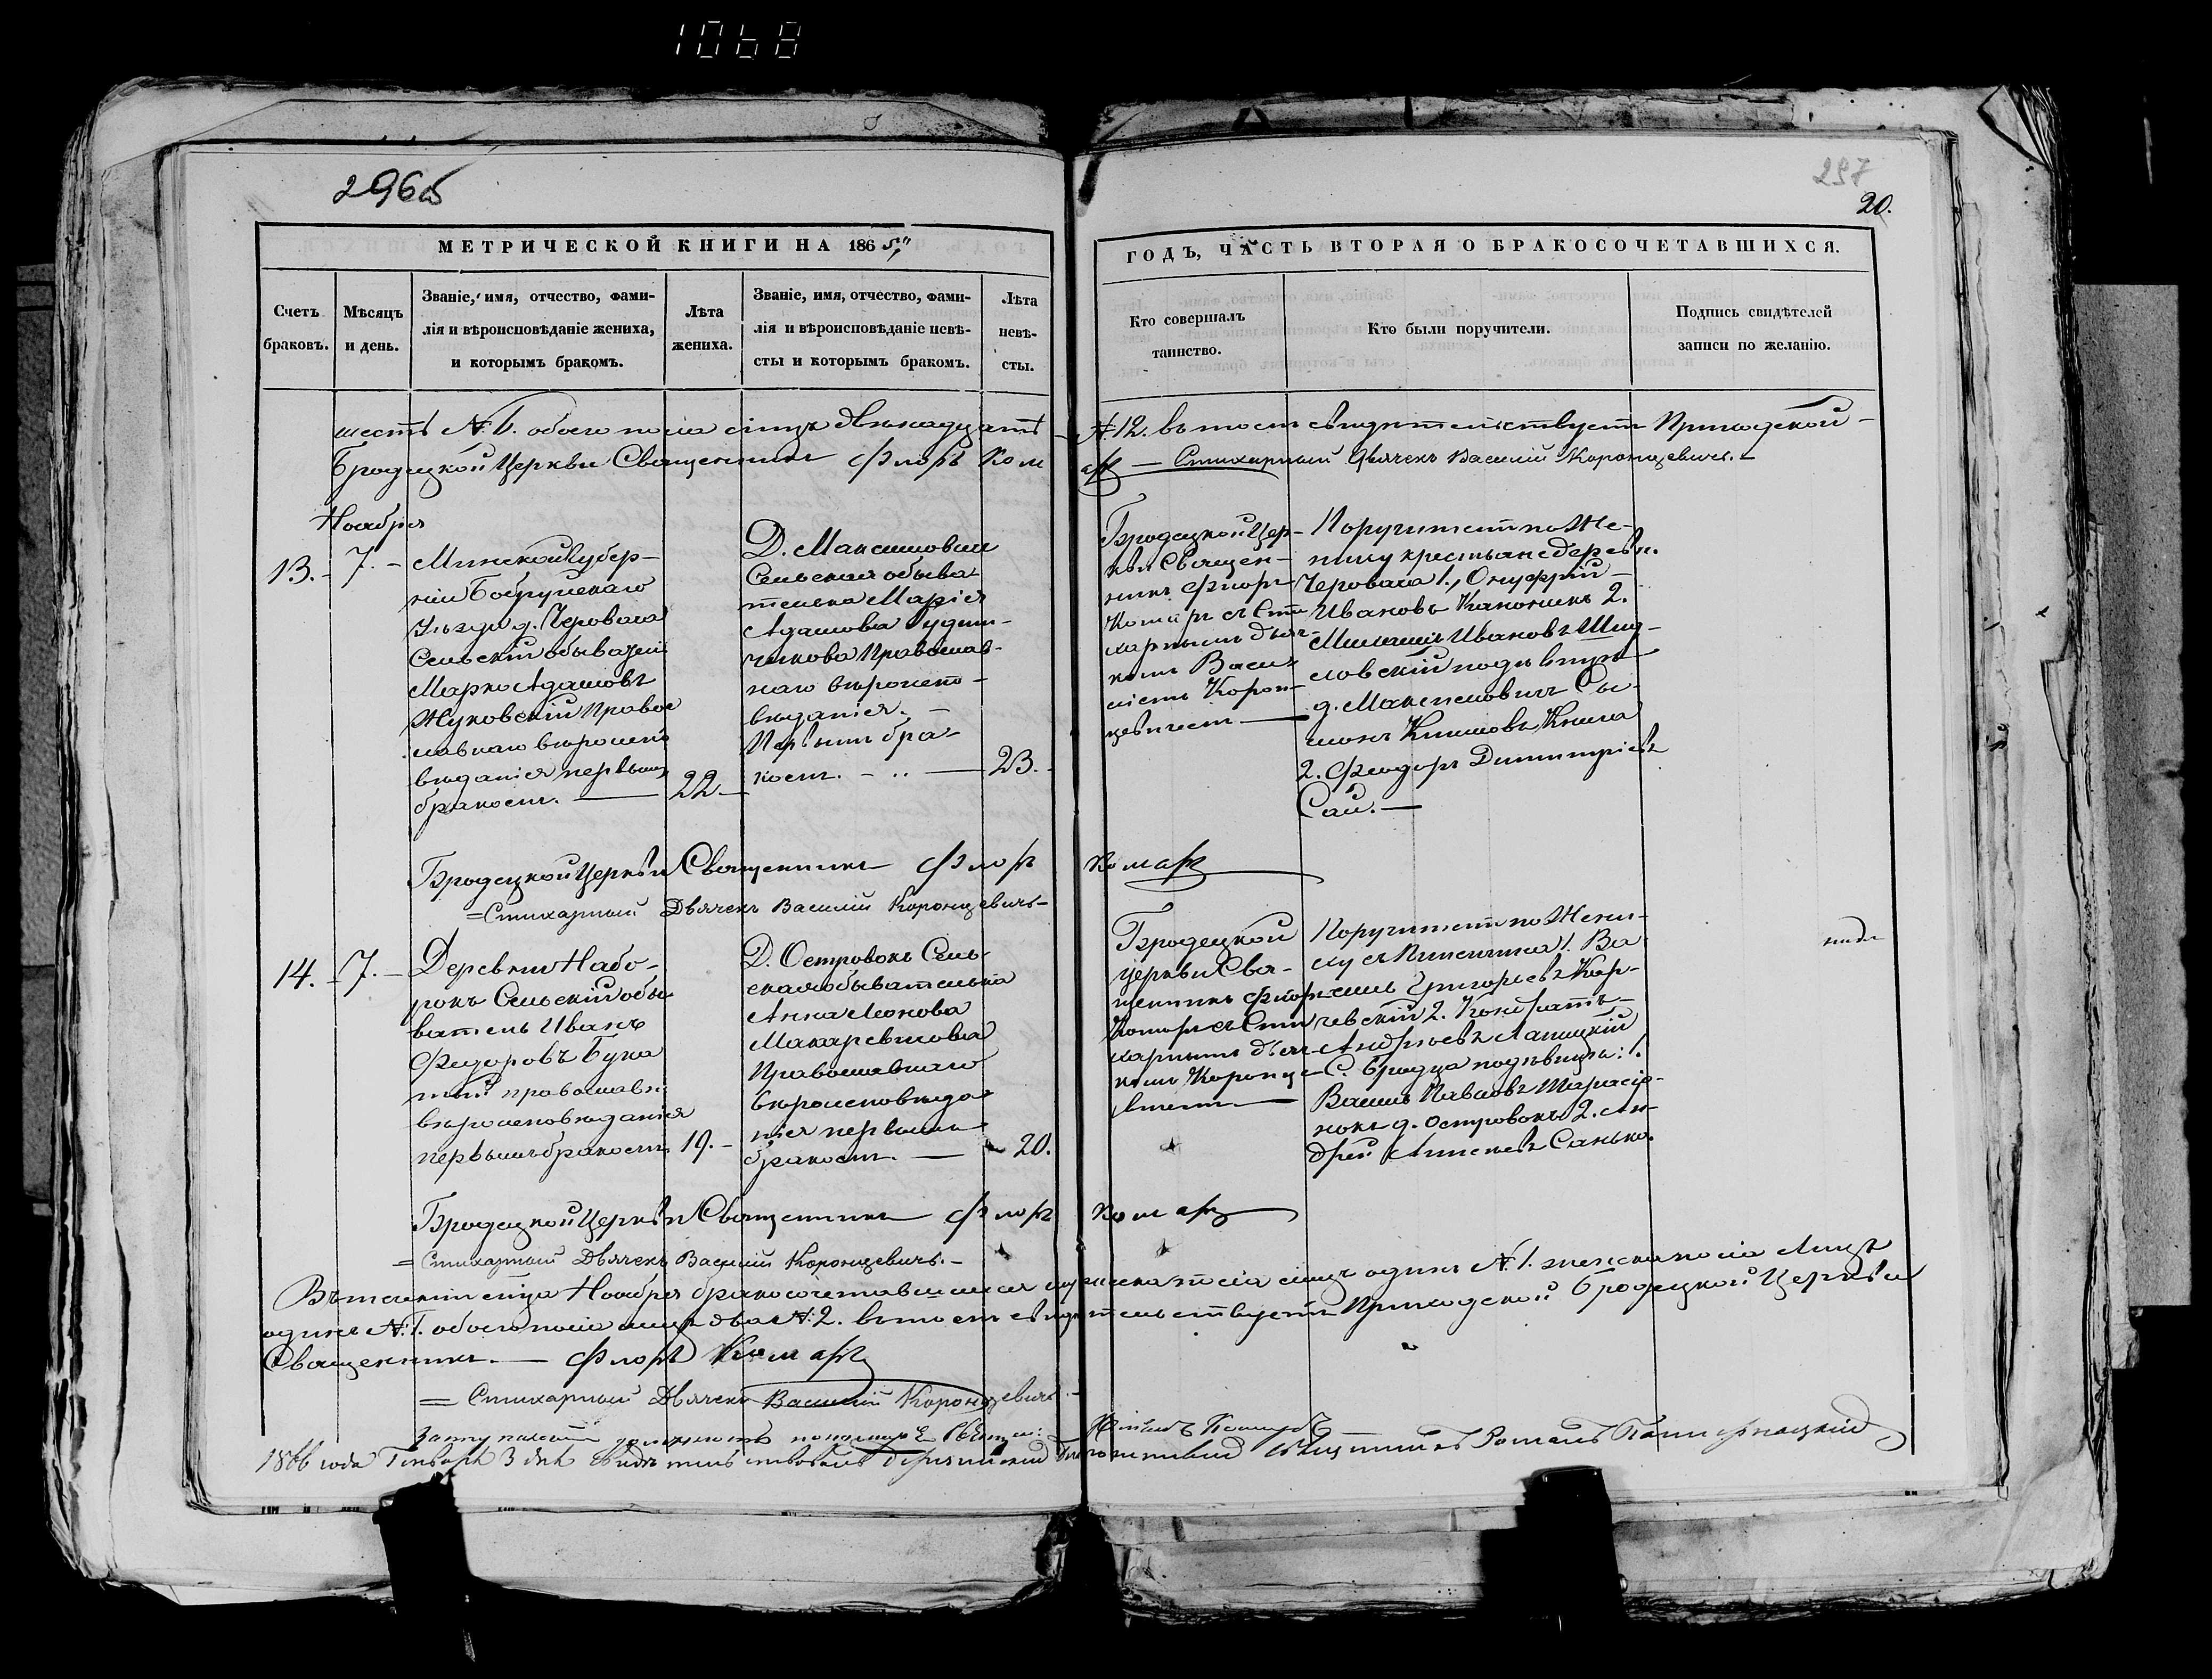 1068
296б
297
20.
МЕТРИЧЕСКОЙ КНИГИ НА 1865
ГОДЪ, ЧАСТЬ ВТОРАЯ О БРАКОСОЧЕТАВШИХСЯ.
Счетъ
браковъ.
Мѣсяцъ
и день.
Званіе, имя, отчество, фами-
лія и вѣроисповѣданіе жениха,
и которымъ бракомъ.
Лѣта
жениха.
Званіе, имя, отчество, фами-
лія и вѣроисповѣданіе невѣ-
сты и которымъ бракомъ.
Лѣта
невѣ-
сты.
Кто совершалъ
таинство.
Кто были поручители.
Подпись свидѣтелей
записи по желанію.
шесть №6. обоего пола лицъ двѣнадцать № 12. въ томъ свидѣтельствуетъ Приходской
Бродецкой Церкви Священникъ Флоръ Комаръ — Стихарный Дьячекъ Василій Коронцевичъ.
Ноября
13. 7.
Минской Губер-
ніи Бобруйскаго
Уѣзда д. Леровала
Сельскій обыватель
Марко Адамовъ
Жуковскій Право-
славнаго вѣроиспо-
вѣданія первымъ
бракомъ.
22.
Д. Максимович
Сельская обыва-
телька Марія
Адамова
Православ-
наго вѣроиспо-
вѣданія.
Первымъ бра-
комъ.
23.
Бродецкой Цер-
кви Священ-
никъ Флоръ
Комаръ съ Сти-
харнымъ дьяч-
комъ Васи-
ліемъ Корон-
цевичемъ
Поручители по Же-
ниху крестьяне дерев.
1. Онуфрій
Ивановъ Каноникъ 2.
Ивановъ
по невѣстѣ
д. Максимовичъ Си-
монъ Климовъ Книга
2. Феодоръ Димитріевъ
Сай.
Бродецкой Церкви Священникъ Флоръ Комаръ
Стихарный Дьячекъ Василій Коронцевичъ
14. 7.
Деревни Набо-
рокъ Сельскій обы-
ватель Иванъ
Федоровъ Бука-
тый православн:
вѣроисповѣданія
первымъ бракомъ
19.
Д. Островокъ Сель-
ская обывателька
Анна Леонова
Макаревичова
Православнаго
вѣроисповѣда-
нія первымъ
бракомъ.
20.
Бродецкой
церкви Свя-
щенникъ Флоръ
Комаръ съ Сти-
харнымъ дьяч-
комъ Коронце-
вичемъ
Поручители по Жени-
ху 1. Ва-
силь Григорьевъ Кар-
чевскій 2. Кондратъ
Андреевъ Лапицкій
С. Бродца по невѣстѣ: 1.
Василь Павловъ Тарасю-
нокъ д. Островокъ 2. Ан-
дрей Алексѣевъ Санько.
Бродецкой Церкви Священникъ Флоръ Комаръ
Стихарный Дьячекъ Василій Коронцевичъ.
Въ теченіи м-ца Ноября бракосочетавшихся мужеска пола лицъ одинъ №1. женска пола лицъ
одинъ №1. обоего пола лицъ два №2. въ томъ свидѣтельствуетъ Приходской Бродецкой Церкви
Священникъ. — Флоръ Комаръ
Стихарный Дьячекъ Василій Коронцевичъ
1866 года Января 3 дня Благочинный Священникъ Романъ